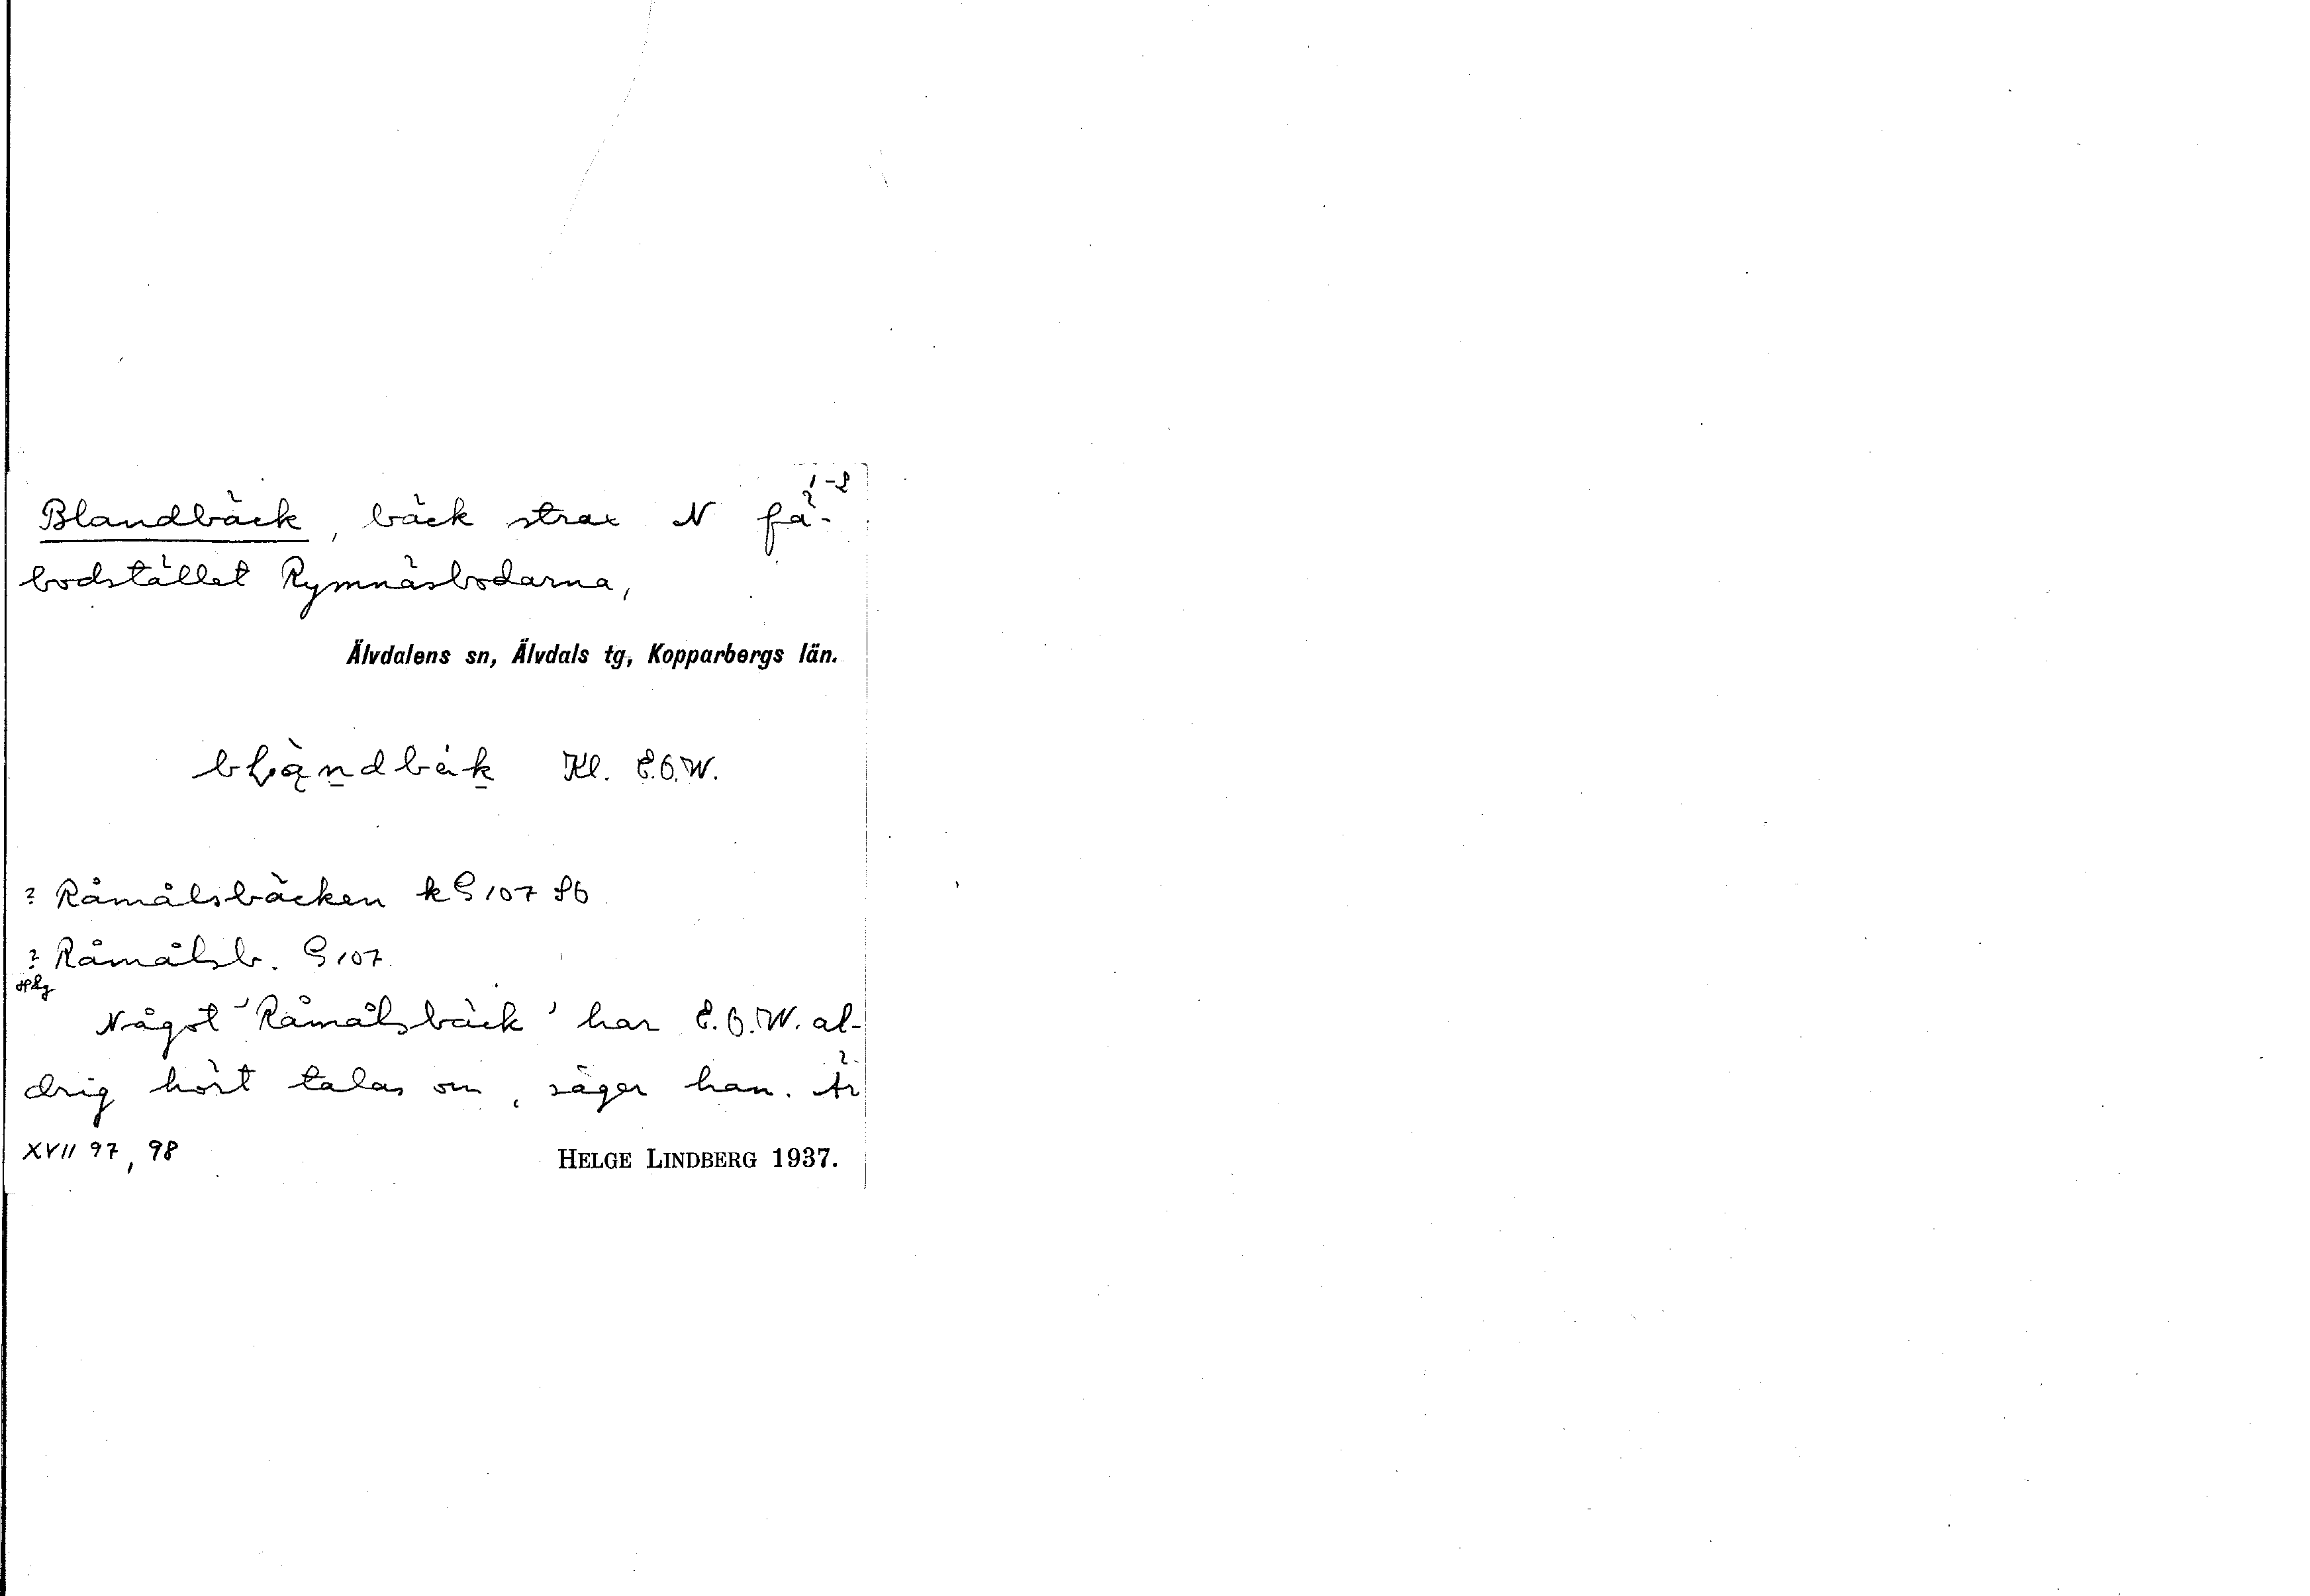 1-2
Blandbäck, bäck strax N fä-
bodstället Rymnäsbodarna,
Älvdalens sn, Älvdals tg, Kopparbergs län.
Kl. E.O.W.
? Råmålsbäcken k G 107 Sb
? Råmålsb. G 107
Något 'Råmålsbäck' har E.O.W. al-
drig hört talas om, säger han. Är
XVII 97, 98
HELGE LINDBERG 1937.